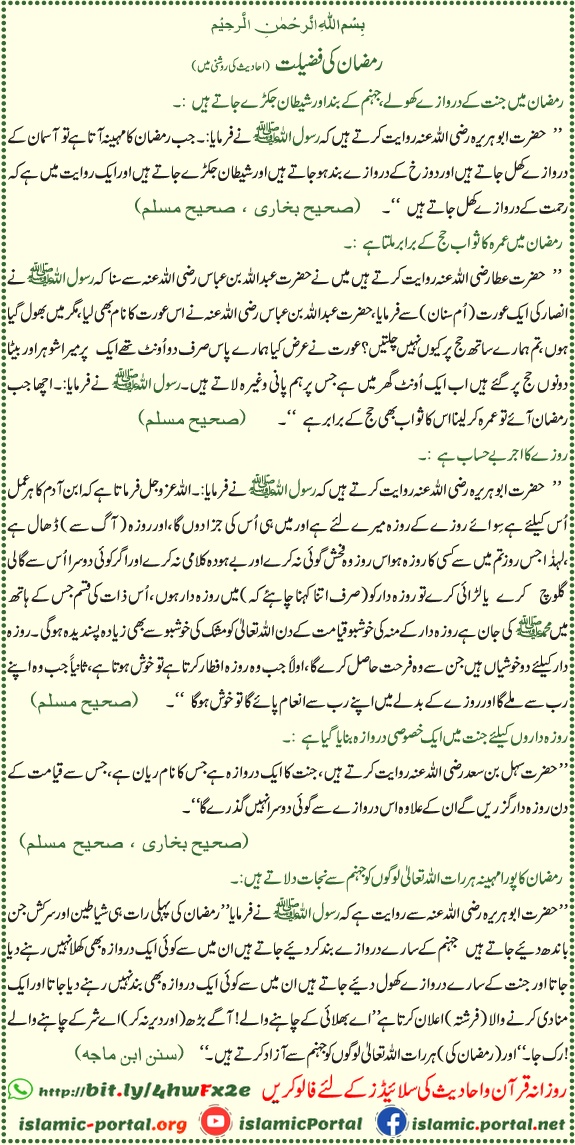 بِسْمِ اللهِ الرَّحْمٰنِ الرَّحِيْمِ
رمضان کی فضیلت (احادیث کی روشنی میں)
رمضان میں جنت کے دروازے کھولے، جہنم کے بند اور شیطان جکڑے جاتے ہیں :۔
’’ حضرت ابو ہریرہ رضی اللہ عنہ روایت کرتے ہیں کہ رسول اللہ ﷺ نے فرمایا:۔ جب رمضان کا مہینہ آتا ہے تو آسمان کے
دروازے کھل جاتے ہیں اور دوزخ کے دروازے بند ہو جاتے ہیں اور شیطان جکڑے جاتے ہیں اور ایک روایت میں ہے کہ
رحمت کے دروازے کھل جاتے ہیں ‘‘۔ (صحیح بخاری ، صحیح مسلم)
رمضان میں عمرہ کا ثواب حج کے برابر ملتا ہے :۔
’’ حضرت عطا رضی اللہ عنہ روایت کرتے ہیں میں نے حضرت عبداللہ بن عباس رضی اللہ عنہ سے سنا کہ رسول اللہ ﷺ نے
انصار کی ایک عورت (اُم سنان) سے فرمایا، حضرت عبداللہ بن عباس رضی اللہ عنہ نے اس عورت کا نام بھی لیا، مگر میں بھول گیا
ہوں، تم ہمارے ساتھ حج پر کیوں نہیں چلتیں؟ عورت نے عرض کیا ہمارے پاس صرف دو اُونٹ تھے ایک پر میرا شوہر اور بیٹا
دونوں حج پر گئے ہیں اب ایک اُونٹ گھر میں ہے جس پر ہم پانی وغیرہ لاتے ہیں۔ رسول اللہ ﷺ نے فرمایا:۔ اچھا جب
رمضان آئے تو عمرہ کر لینا اس کا ثواب بھی حج کے برابر ہے ‘‘۔ (صحیح مسلم)
روزے کا اجر بے حساب ہے :۔
’’ حضرت ابو ہریرہ رضی اللہ عنہ روایت کرتے ہیں کہ رسول اللہ ﷺ نے فرمایا:۔ اللہ عزوجل فرماتا ہے کہ ابن آدم کا ہر عمل
اُس کیلئے ہے سِوائے روزے کے روزہ میرے لئے ہے اور میں ہی اُس کی جزا دوں گا، اور روزہ (آگ سے) ڈھال ہے
،لہذا جس روز تم میں سے کسی کا روزہ ہو اس روز وہ فحش گوئی نہ کرے اور بے ہودہ کلامی نہ کرے اور اگر کوئی دوسرا اُس سے گالی
گلوچ کرے یا لڑائی کرے تو روزہ دار کو (صرف اتنا کہنا چاہئے کہ) میں روزہ دار ہوں، اُس ذات کی قسم جس کے ہاتھ
میں محمد ﷺ کی جان ہے روزہ دار کے منہ کی خوشبو قیامت کے دن اللہ تعالیٰ کو مشک کی خوشبو سے بھی زیادہ پسندیدہ ہو گی۔ روزہ
دار کیلئے دو خوشیاں ہیں جن سے وہ فرحت حاصل کرے گا، اولاً جب وہ روزہ افطار کرتا ہے تو خوش ہوتا ہے، ثانیاً جب وہ اپنے
رب سے ملے گا اور روزے کے بدلے میں اپنے رب سے انعام پائے گا تو خوش ہو گا ‘‘۔ (صحیح مسلم)
روزہ داروں کیلئے جنت میں ایک خصوصی دروازہ بنایا گیا ہے :۔
’’حضرت سہل بن سعد رضی اللہ عنہ روایت کرتے ہیں، جنت کا ایک دروازہ ہے جس کا نام ریان ہے، جس سے قیامت کے
دن روزہ دار گزریں گے ان کے علاوہ اس دروازے سے کوئی دوسرا نہیں گذرے گا‘‘۔
(صحیح بخاری ، صحیح مسلم)
رمضان کا پورا مہینہ ہر رات اللہ تعالیٰ لوگوں کو جہنم سے نجات دلاتے ہیں:۔
’’حضرت ابو ہریرہ رضی اللہ عنہ سے روایت ہے کہ رسول اللہ ﷺ نے فرمایا’’رمضان کی پہلی رات ہی شیاطین اور سرکش جن
باندھ دیئے جاتے ہیں جہنم کے سارے دروازے بند کر دئیے جاتے ہیں ان میں سے کوئی ایک دروازہ بھی کھلا نہیں رہنے دیا
جاتا اور جنت کے سارے دروازے کھول دئیے جاتے ہیں ان میں سے کوئی ایک دروازہ بھی بند نہیں رہنے دیا جاتا اور ایک
منادی کرنے والا (فرشتہ) اعلان کرتا ہے’’اے بھلائی کے چاہنے والے! آگے بڑھ (اور دیر نہ کر) اے شر کے چاہنے والے
!رک جا۔‘‘اور (رمضان کی) ہر رات اللہ تعالیٰ لوگوں کو جہنم سے آزاد کرتے ہیں۔‘‘ (سنن ابن ماجه)
روزانہ قرآن و احادیث کی سلائیڈز کے لئے فالو کریں http://bit.ly/4hwFx2e
islamic-portal.org islamicPortal islamic-portal.net